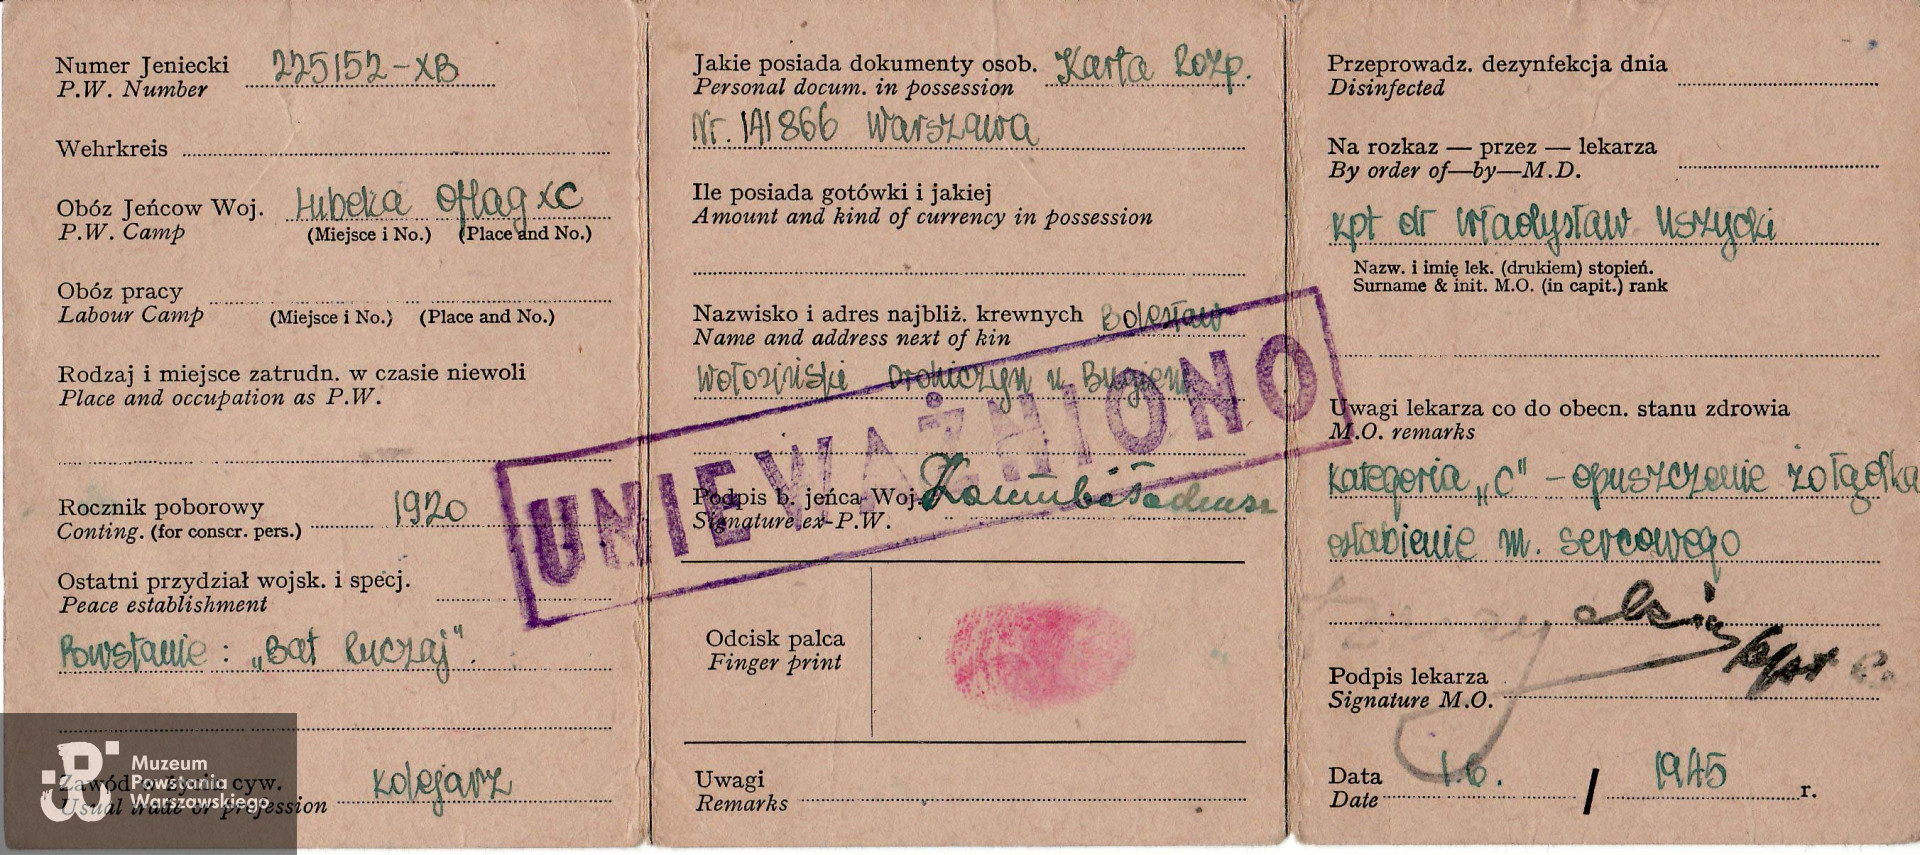 Numer Jeniecki 225152-XB
P.W. Number
Wehrkreis
Obóz Jeńcow Woj. Lubeka Oflag XC
P.W. Camp (Miejsce i No.) (Place and No.)
Obóz pracy
Labour Camp (Miejsce i No.) (Place and No.)
Rodzaj i miejsce zatrudn. w czasie niewoli
Place and occupation as P.W.
Rocznik poborowy 1920
Conting. (for conscr. pers.)
Ostatni przydział wojsk. i specj.
Peace establishment
Powstanie: „Bat Ruczaj".
Zawód w życiu cyw. kolejarz
Usual trade or profession
Muzeum
Powstania
Warszawskiego
Jakie posiada dokumenty osob. Karta Rozp.
Personal docum. in possession
Nr. 1A1866 Warszawa
Ile posiada gotówki i jakiej
Amount and kind of currency in possession
Nazwisko i adres najbliż. krewnych Bolesław
Name and address next of kin
Wołosiński Drohiczyn n. Bugiem
UNIEWAŻNIONO
Podpis b. jeńca Woj.
Signature ex-P.W.
Odcisk palca
Finger print
Uwagi
Remarks
Przeprowadz. dezynfekcja dnia
Disinfected
Na rozkaz — przez — lekarza
By order of—by—M.D.
kpt dr Władysław Uszycki
Nazw. i imię lek. (drukiem) stopień.
Surname & init. M.O. (in capit.) rank
Uwagi lekarza co do obecn. stanu zdrowia
M.O. remarks
Kategoria „C" - opuszczenie żołądka
osłabienie m. sercowego
Podpis lekarza
Signature M.O.
Data 1.6. / 1945 r.
Date